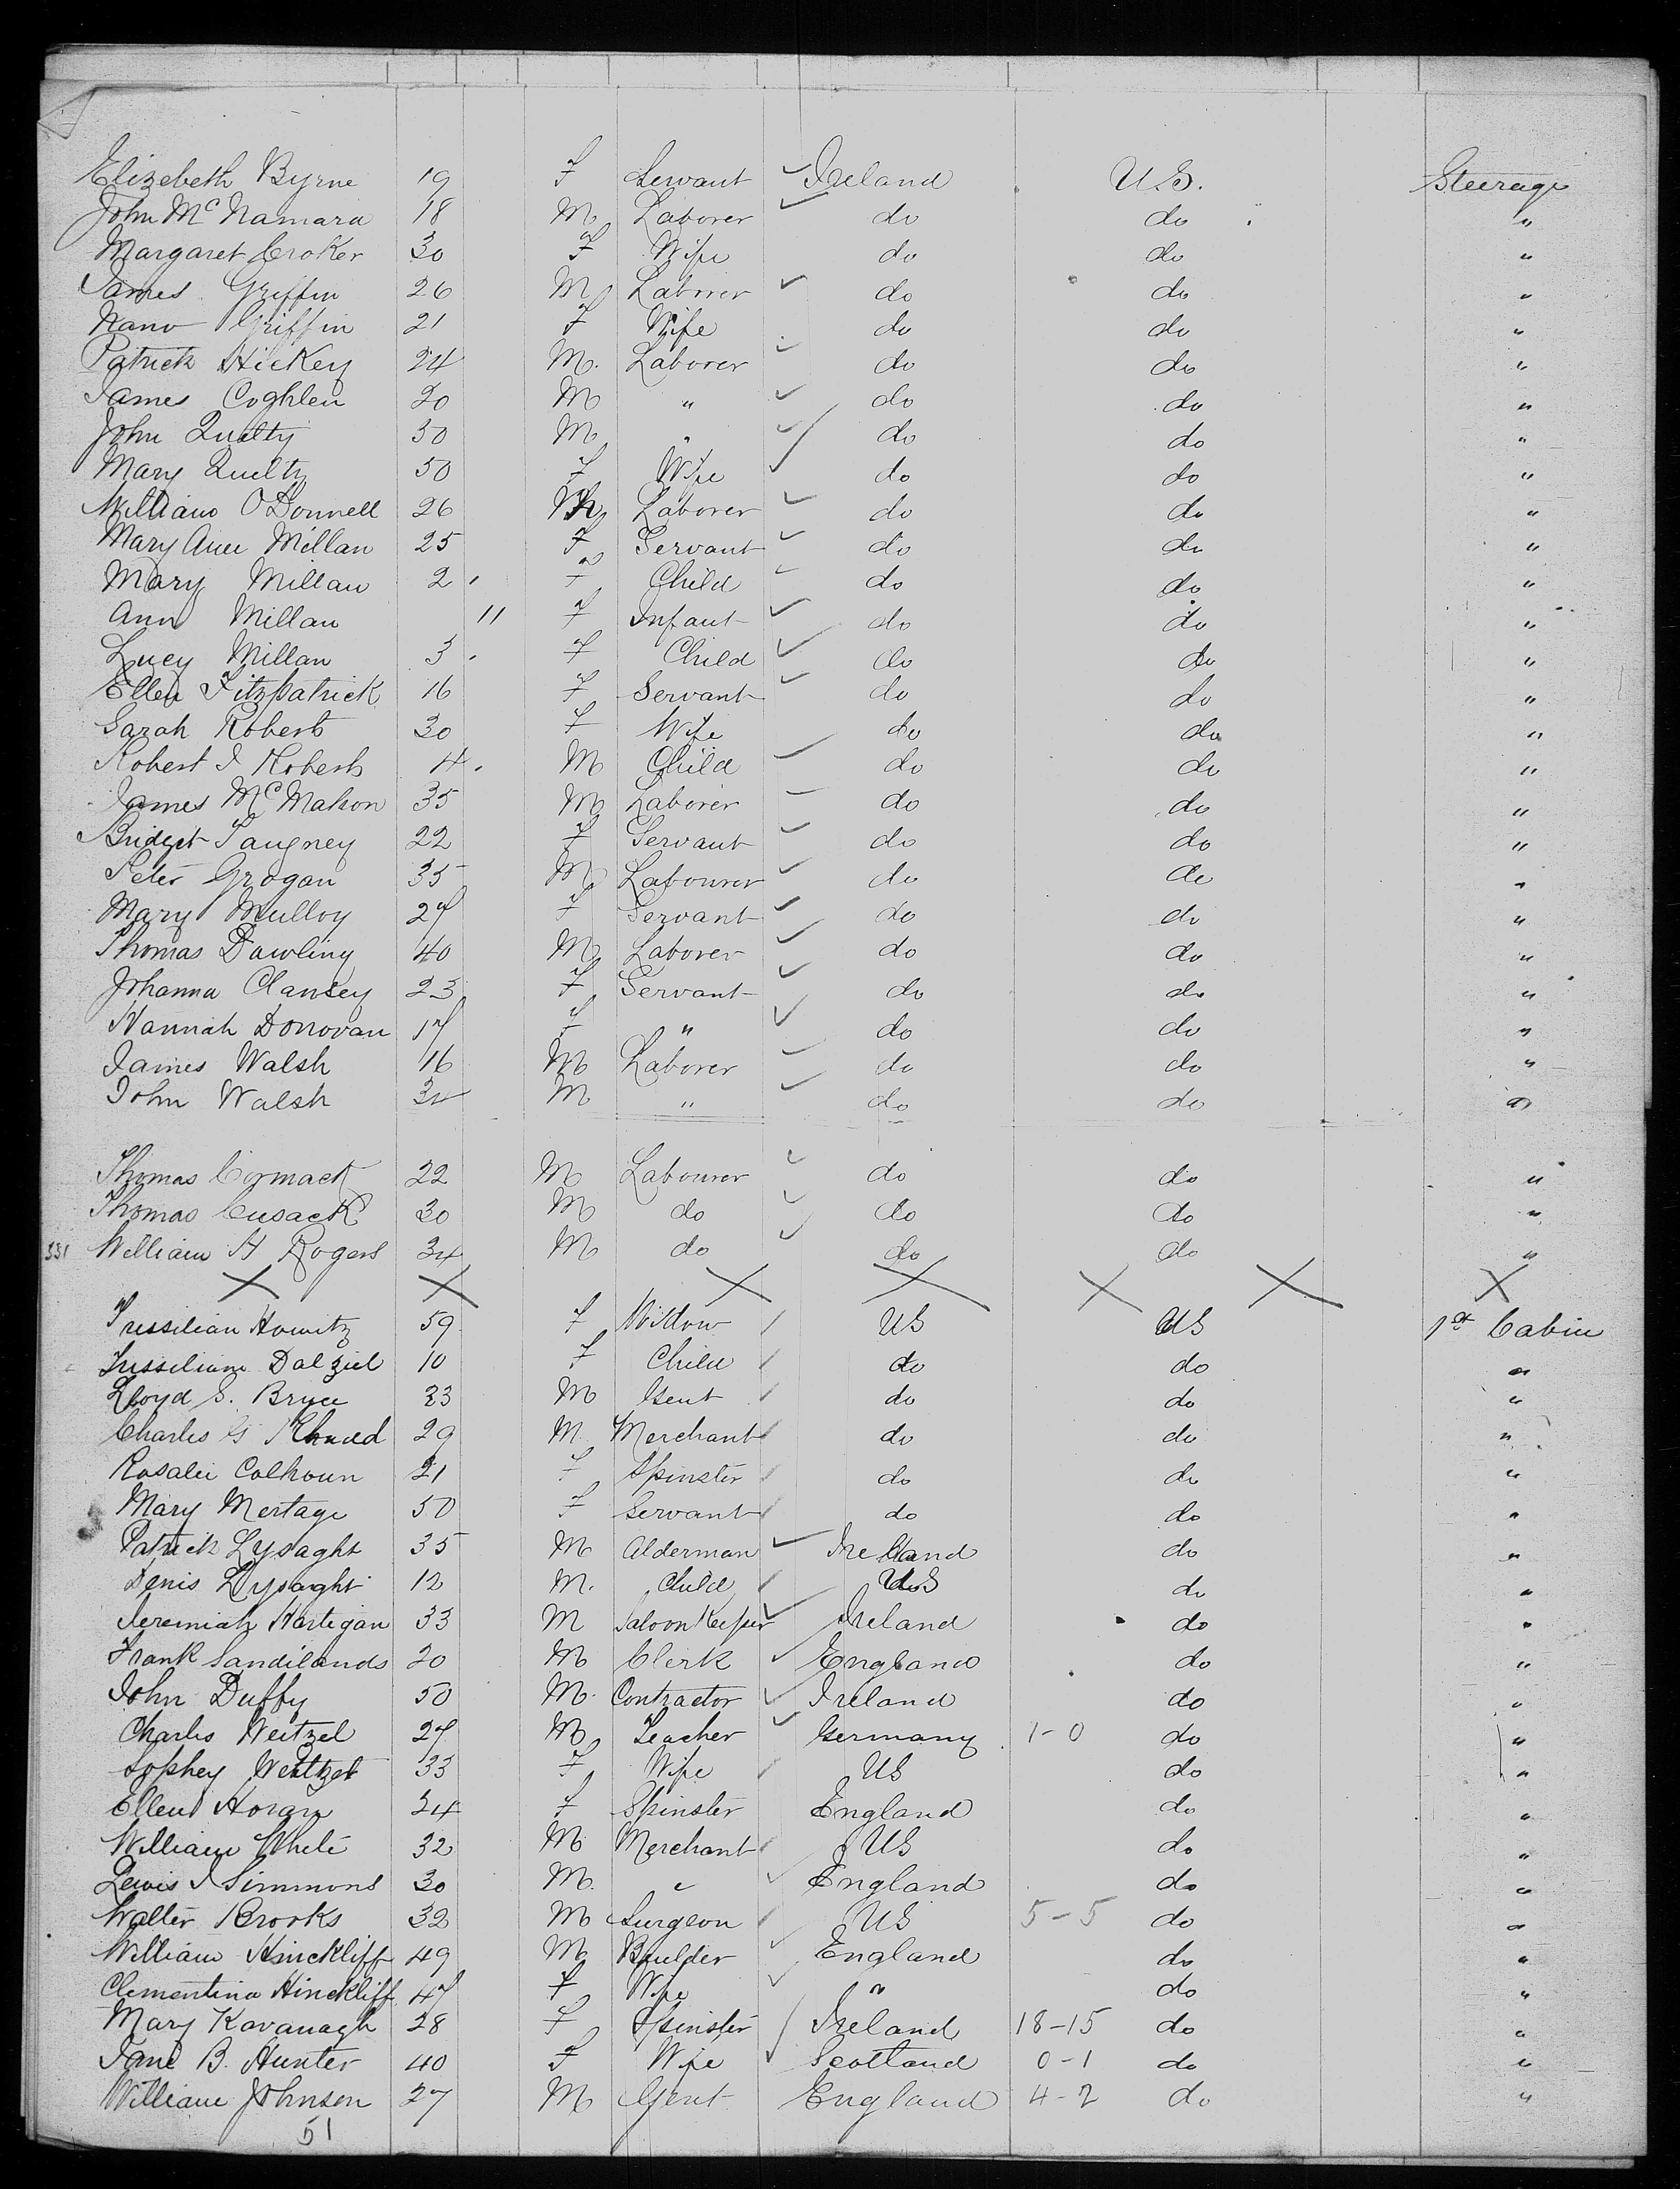 Elizebeth Byrne 19 F Servant Ireland U.S. Steerage
John McNamara 18 M Laborer do do "
Margaret Croker 30 F Wife do do "
James Griffin 26 M Laborer do do "
Griffin 21 F Wife do do "
Patrick Hickey 24 M. Laborer do do "
James Coghlen 20 M " do do "
John Quilty 50 M " do do "
Mary Quilty 50 F Wife do do "
William O'Donnell 26 M Laborer do do "
Mary Ann Millan 25 F Servant do do "
Mary Millan 2 F Child do do "
Ann Millan 11 F Infant do do "
Lucy Millan 3 F Child do do "
Ellen Fitzpatrick 16 F Servant do do "
Sarah Roberts 30 F Wife do do "
Robert J Roberts 4 M Child do do "
James McMahon 35 M Laborer do do "
Bridget 22 F Servant do do "
Peter Grogan 35 M Labourer do do "
Mary Mulloy 27 F Servant do do "
Thomas Dawling 40 M Laborer do do "
Johanna Clansey 23 F Servant do do "
Hannah Donovan 17 F " do do "
James Walsh 16 M Laborer do do "
John Walsh M " do do "
Thomas Cormack 22 M Labourer do do "
Thomas Cusack 30 M do do do "
331 William H Rogers 34 M do do do "
X X X X X X X
Howitz 59 F Widow US US 1st Cabin
Dalziel 10 F Child do do "
Lloyd S. Bryce 23 M Gent do do "
Charles G 29 M Merchant do do "
Rosalie Calhoun 21 F Spinster do do "
Mary Mertage 50 F Servant do do "
Patrick Lysaght 35 M Alderman Ireland do "
Denis Lysaght 12 M. Child US do "
Jeremiah Hartigan 33 M Saloon Keeper Ireland do "
Frank Sandilands 20 M Clerk England do "
John Duffy 50 M. Contractor Ireland do "
Charles Weitzel 27 M Teacher Germany 1-0 do "
Sophey Weitzel 33 F Wife US do "
Ellen Horan 24 F Spinster England do "
William White 32 M Merchant US do "
Lewis J Simmons 30 M. " England do "
Walter Brooks 32 M Surgeon US 5-5 do "
William Hinckliff 49 M Builder England do "
Clementina Hinckliff 47 F Wife " do "
Mary Kavanagh 28 F Spinster Ireland 18-15 do "
Jane B. Hunter 40 F Wife Scotland 0-1 do "
William Johnson 27 M Gent England 4-2 do "
51